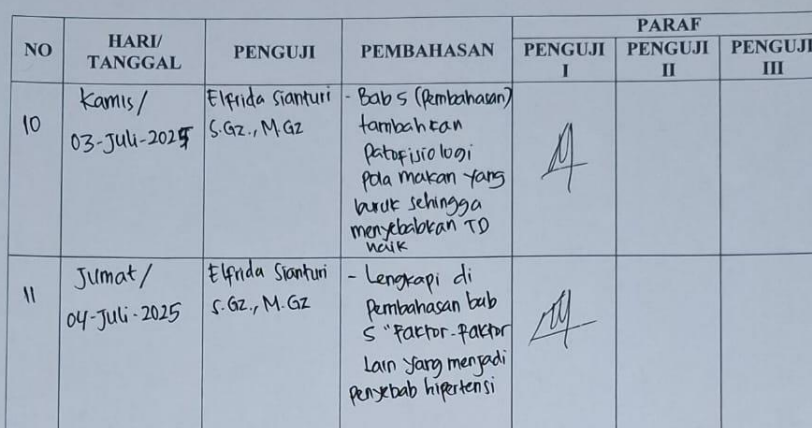 NO
HARI/
TANGGAL
PENGUJI
PEMBAHASAN
PARAF
PENGUJI
I
PENGUJI
II
PENGUJI
III
10
Kamis/
03-Juli-2025
Elfrida Sianturi
S.Gz., M.Gz
- Bab 5 (Pembahasan)
tambahkan
patofisiologi
pola makan yang
buruk sehingga
menyebabkan TD
naik
11
Jumat/
04-Juli-2025
Elfrida Sianturi
S.Gz., M.Gz
- Lengkapi di
Pembahasan bab
5 "Faktor-faktor
Lain yang menjadi
penyebab hipertensi